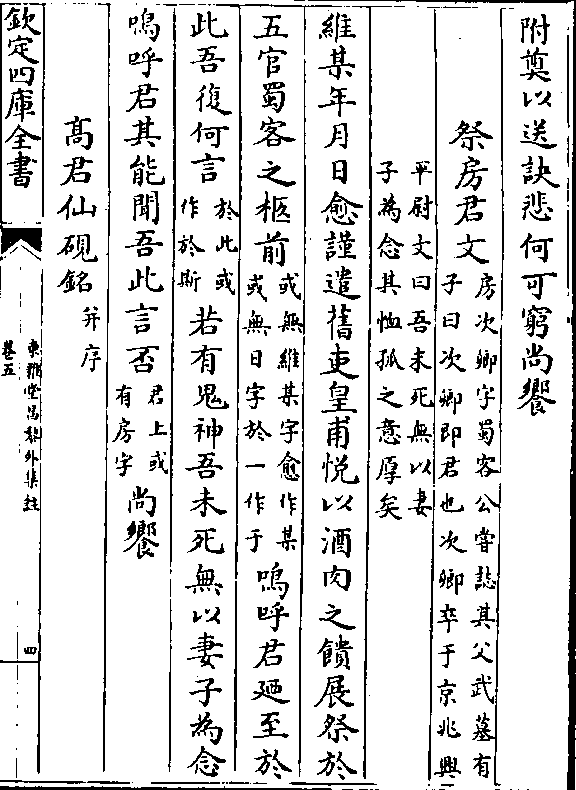 附奠以送訣悲何可窮尚饗
祭房君文
房次卿字蜀客公嘗誌其父武墓有
子曰次卿即君也次卿卒于京兆興
平尉文曰吾未死無以妻
子為念其恤孤之意厚矣
維某年月日愈謹遣舊吏皇甫悅以酒肉之饋展祭於
五官蜀客之柩前
或無維某字愈作某
或無日字於一作于
嗚呼君廼至於
此吾復何言
於此或
作於斯
若有鬼神吾未死無以妻子為念
嗚呼君其能聞吾此言否
君上或
有房字
尚饗
高君仙硯銘
并序
欽定四庫全書
東雅堂昌黎外集註
卷五
四